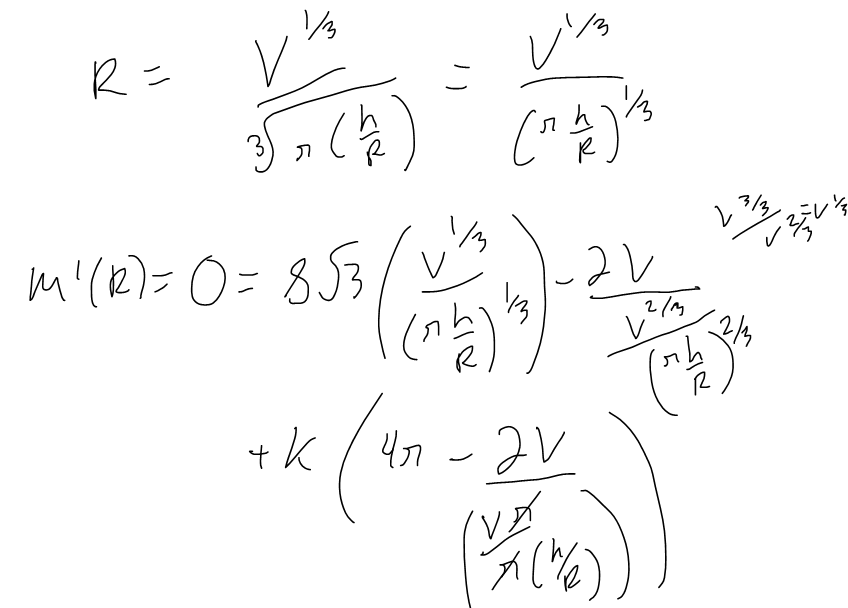 R = V^{1/3} / ∛(π(h/R)) = V^{1/3} / (π h/R)^{1/3}
V^{3/3} / V^{2/3} = V^{1/3}
m'(R) = 0 = 8√3 (V^{1/3} / (π h/R)^{1/3}) - 2V / (V^{2/3} / (π h/R)^{2/3})
+ K (4π - 2V / (Vπ / π(h/R)))